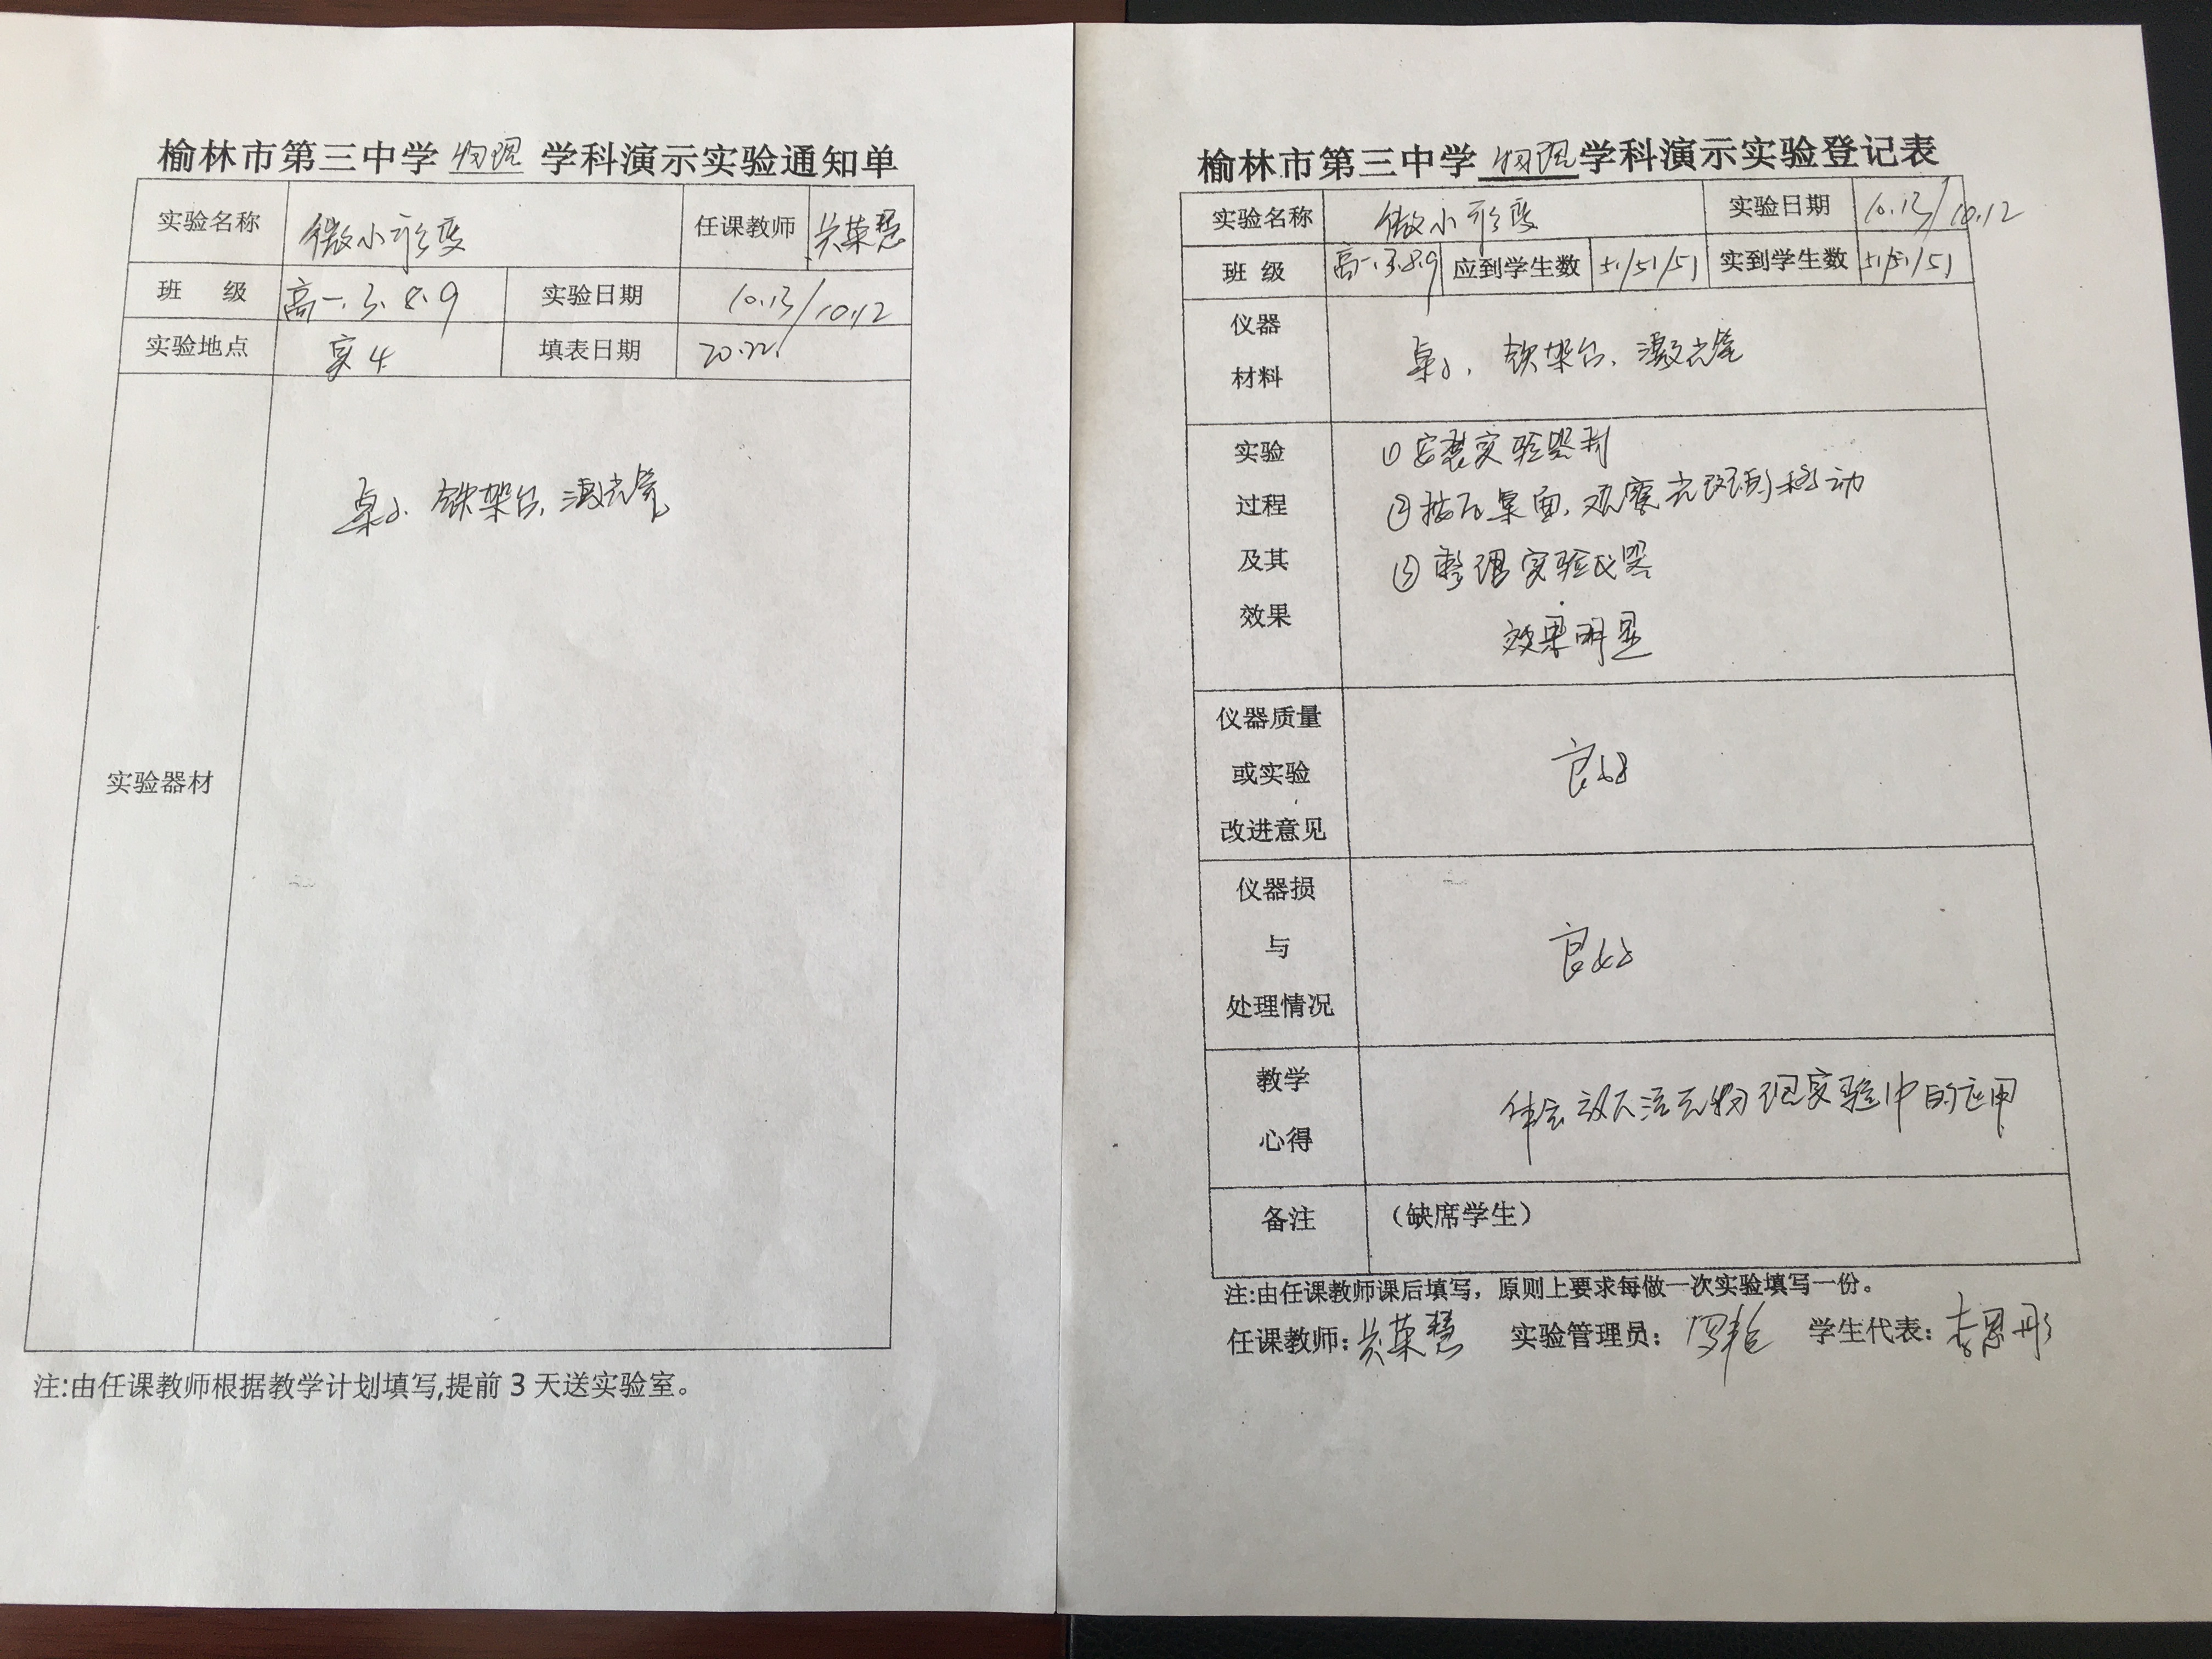 榆林市第三中学 物理 学科演示实验通知单
实验名称 微小形变 任课教师 吴菊慧
班 级 高一.3.8.9 实验日期 10.13/10.12
实验地点 实4 填表日期 20.22.
实验器材 桌子、铁架台、激光笔
注:由任课教师根据教学计划填写,提前3天送实验室。
榆林市第三中学 物理 学科演示实验登记表
实验名称 微小形变 实验日期 10.13/10.12
班 级 高一.3.8.9 应到学生数 51/51/51 实到学生数 51/51/51
仪器
材料
桌子、铁架台、激光笔
实验
过程
及其
效果
①安装实验器材
②按压桌面,观察光斑的移动
③整理实验仪器
效果明显
仪器质量
或实验
改进意见
良好
仪器损
与
处理情况
良好
教学
心得
体会放大法在物理实验中的应用
备注 (缺席学生)
注:由任课教师课后填写，原则上要求每做一次实验填写一份。
任课教师: 吴菊慧 实验管理员: 学生代表: 李思彤